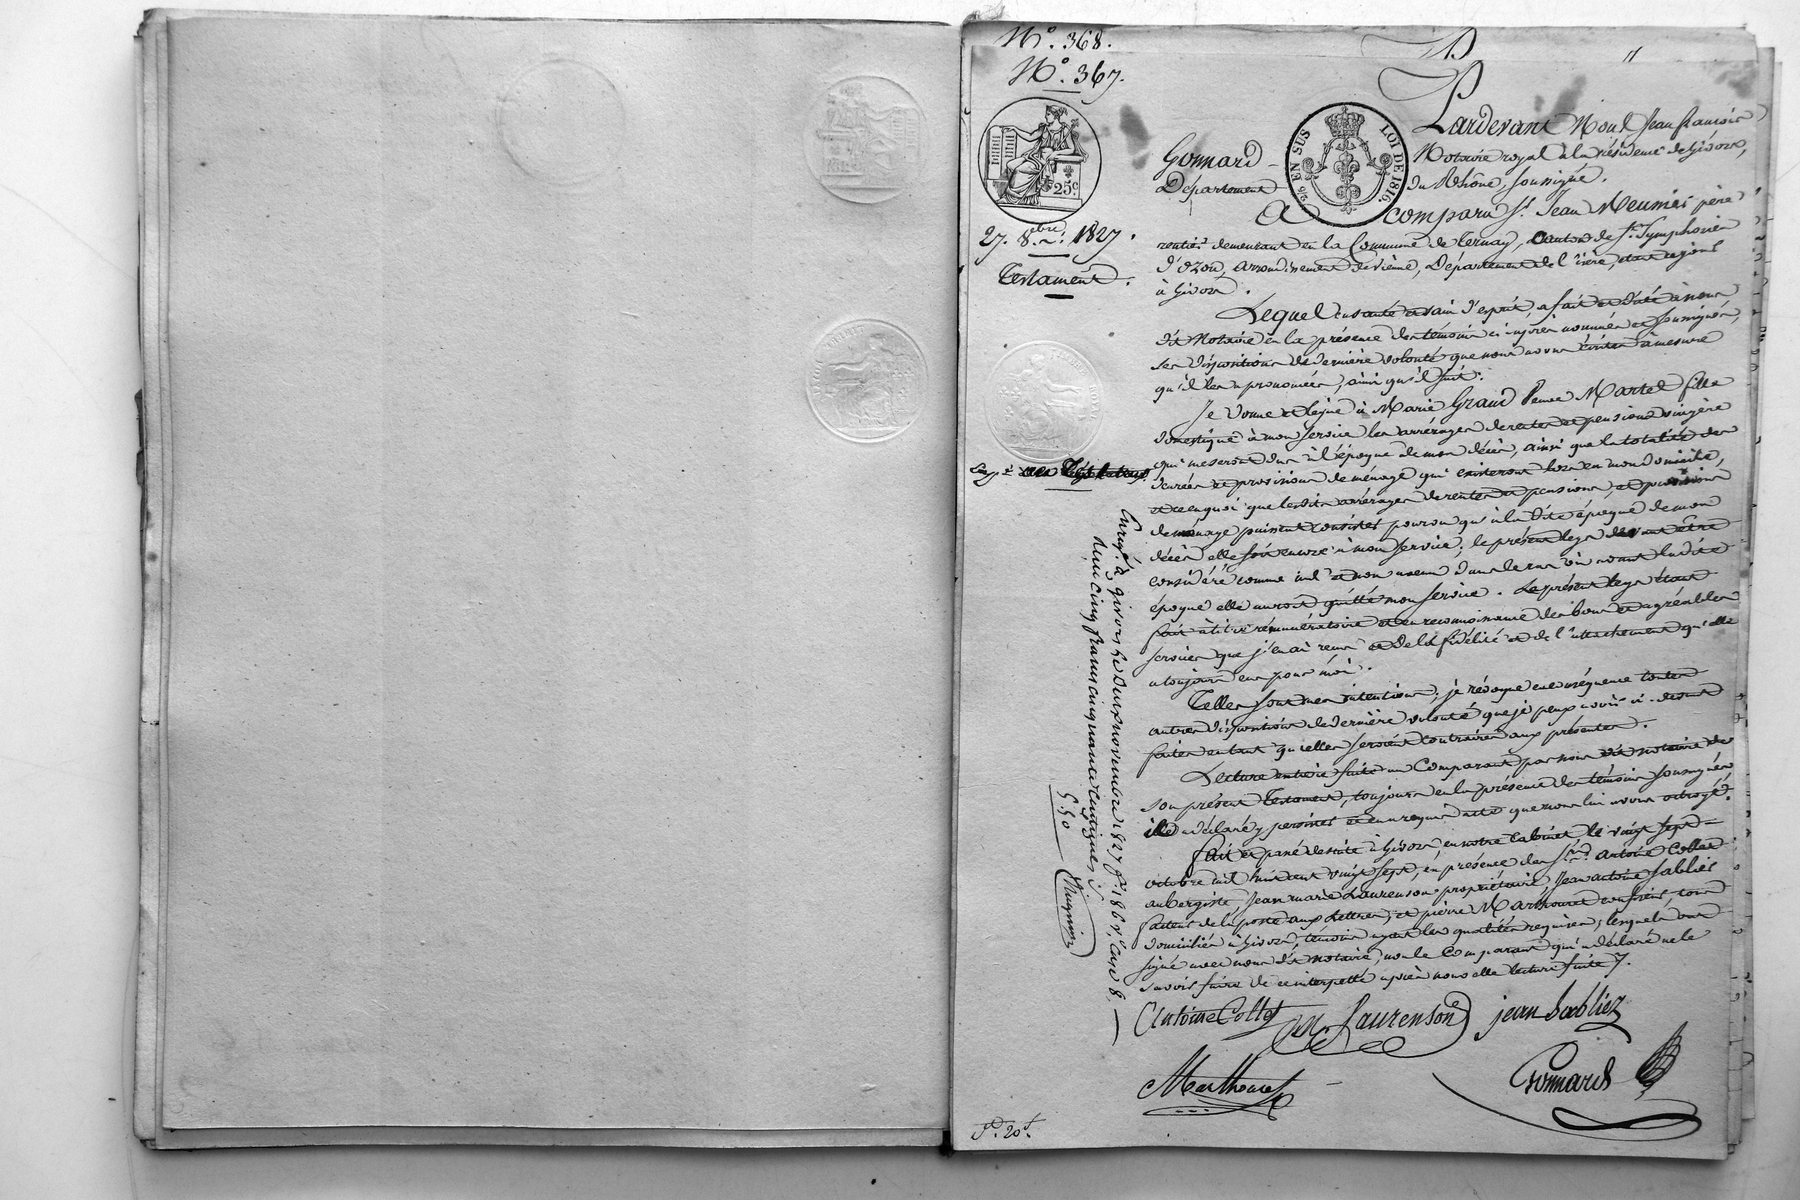 N.° 368.
N.° 367.
25c
2/6 EN SUS
LOI DE 1816.
27. 8bre 1827.
Testament.
Pardevant Nous Jean françois
Gomard Notaire royal à la résidence de Givors,
Département du Rhône, soussigné.
A comparu Sr. Jean Meunier père
rentier demeurant en la Commune de Ternay, Canton de St. Symphorien
d'Ozon, arrondissement de Vienne, Département de l'isère,
à Givors.
Lequel en santé et sain d'esprit, a fait et dicté à nous
dit Notaire en la présence des témoins ci après nommés et soussignés,
ses dispositions de dernière volonté que nous avons écrites à mesure
qu'il les a prononcées, ainsi qu'il suit:
Je donne et legue à Marie Graud Veuve Martel fille
domestique à mon service les arrérages de rentes et pensions viagère
qui me seront dus à l'époque de mon décès, ainsi que la totalité des
denrées et provisions de ménage qui existeront lors en mon domicile,
et ce en quoi que lesdits arrérages de rentes et pensions, et provisions
de ménage puissent consister pourvu qu'à la dite époque de mon
décès elle soit encore à mon service; le présent legs devant être
considéré comme nul et non avenu dans le cas où avant ladite
époque elle auroit quitté mon service. Le présent legs étant
fait à titre rémunératoire et en reconnoissance des bons et agréables
services que j'en ai reçus et de la fidélité et de l'attachement qu'elle
a toujours eus pour moi.
Telles sont mes intentions; je révoque en conséquence toutes
autres dispositions de dernière volonté que je peux avoir ci-devant
faites en tant qu'elles seroient contraires aux présentes.
Lecture entière faite au Comparant par nous dit notaire de
son présent Testament, toujours en la présence des témoins soussignés
il a déclaré y persister et en a requis acte que nous lui avons octroyé.
fait et passé de suite à Givors, en notre cabinet le vingt sept
octobre mil huit cent vingt sept, en présence des Srs. Antoine Collot
aubergiste, Jean marie Laurenson propriétaire, Jean antoine Sabliez
facteur de la poste aux Lettres, et pierre Marthouret confiseur, tous
domiciliés à Givors, témoins ayant les qualités requises; lesquels ont
signé avec nous dit notaire, non le Comparant qui a déclaré ne le
savoir faire de ce interpellé après nouvelle lecture faite.
Antoine Collot
JM Laurenson
jean Sabliez
Marthouret
Gomard
Enregé. à givors le deux novembre 1827 fo. 186 Vo. Case 8.
Reçu cinq francs cinquante centimes
5.50